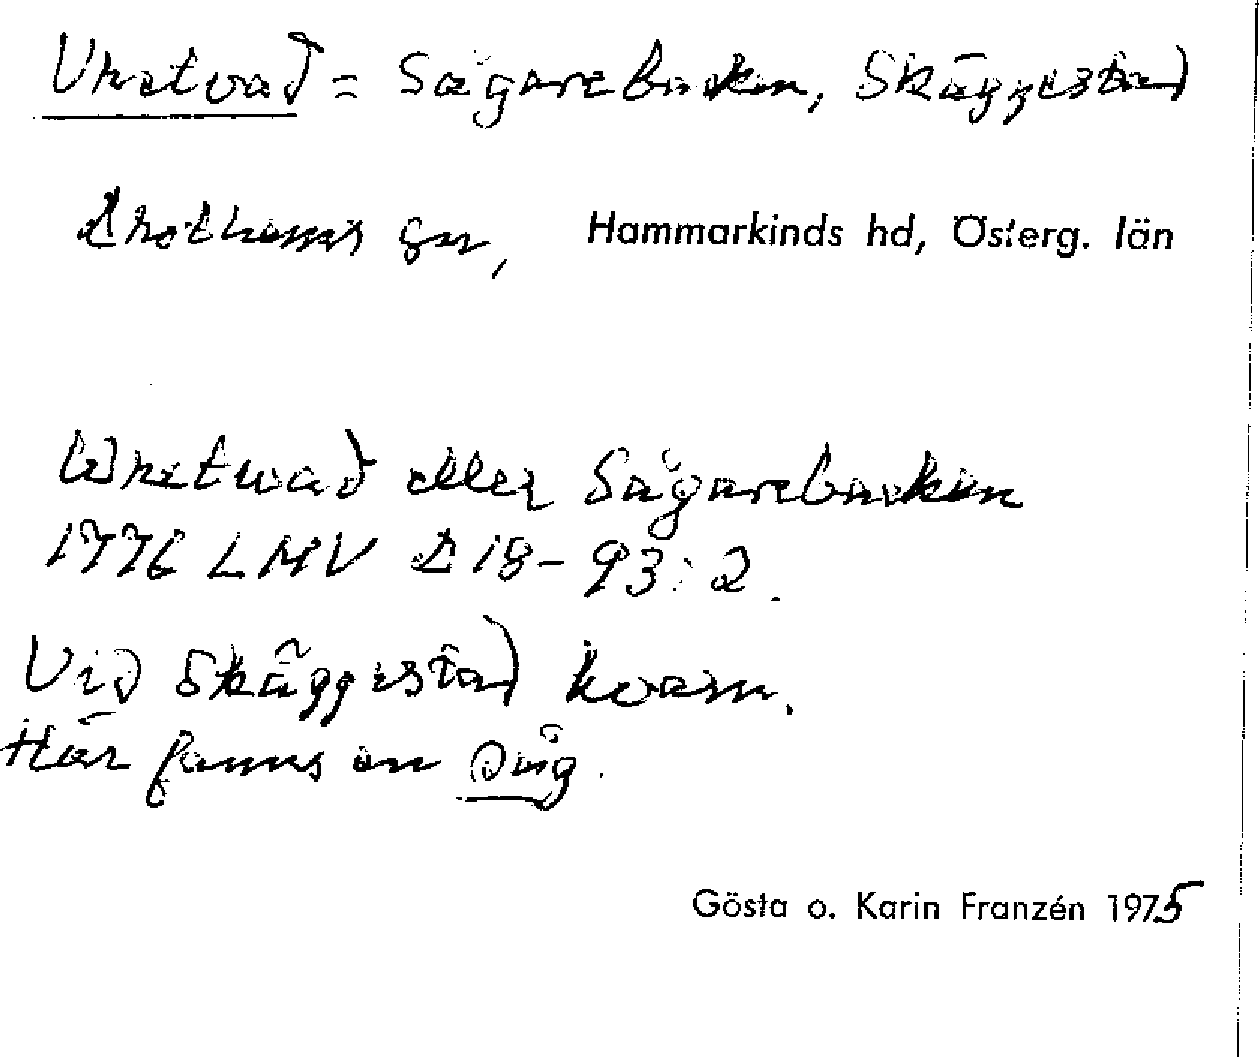 Vretvad = Sågarebacken, Skäggestad
Drothems sn, Hammarkinds hd, Österg. län
Wretwad eller Sågarebacken
1776 LMV D 18-93:2.
Vid Skäggestad kvarn.
Här fanns en såg.
Gösta o. Karin Franzén 1975